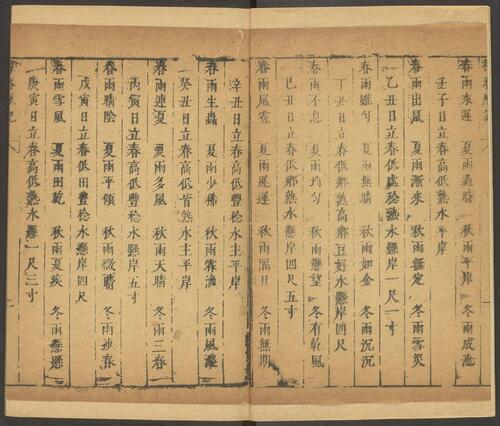 春雨來遲 夏雨並時 秋雨平岸 冬雨成池
壬子日立春高低熟水平岸
春雨出鼠 夏雨漸來 秋雨無定 冬雨雪災
乙丑日立春低處稔熟水懸岸一尺一寸
春雨雖勻 夏雨無晴 秋雨如金 冬雨沉沉
丁丑日立春低鄉熟高鄉豆好水懸岸四尺
春雨不息 夏雨均勻 秋雨懸望 冬有乾風
己丑日立春低鄉熟水懸岸四尺五寸
春雨風雹 夏雨遲遲 秋雨隔日 冬雨無期
辛丑日立春高低豐稔水主平岸
春雨生蟲 夏雨少稀 秋雨霖滴 冬雨風
癸丑日立春高低皆熟水主平岸
春雨連夏 夏雨多風 秋雨天晴 冬雨三春
丙寅日立春高低豐稔水懸岸五寸
春雨晴陰 夏雨平領 秋雨微晴 冬雨連春
戊寅日立春低田豐稔水懸岸四尺
春雨雪風 夏雨田乾 秋雨夏疾 冬雨懸懸
庚寅日立春高低熟水懸一尺三寸